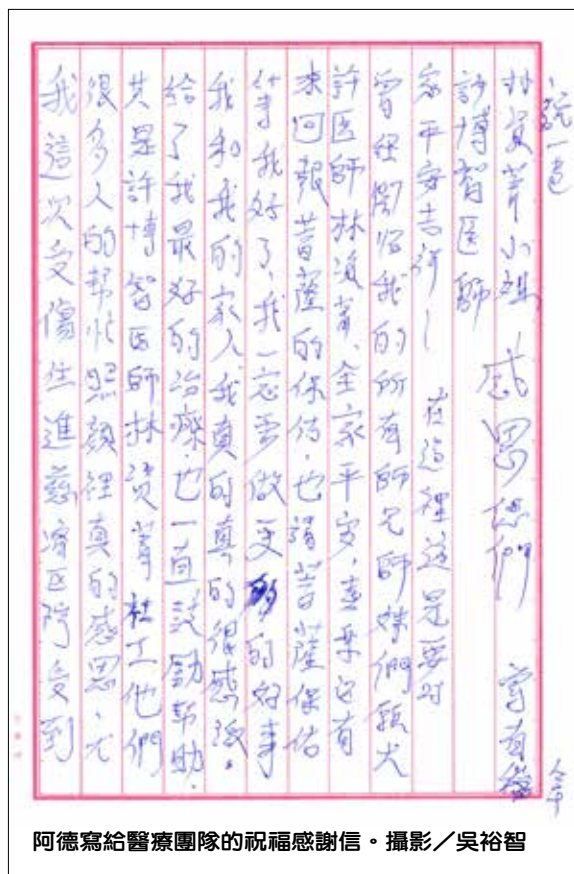 我這次受傷住進慈濟医院受到
很多人的幫忙照顧裡真的感恩、尤
其是許博智医師林資菁社工他們
給了我最好的治療.也一直鼓勵幫助.
我和我的家人我真的真的很感激.
等我好了,我一定要做更的好事
來回報菩薩的保佑.也請菩薩保佑
許医師林資菁、全家平安,還有
曾經關怀我的所有師兄師姊們願大
家平安吉祥! 在這裡還是要对
許博智医師
林資菁小姐,感恩您們
說一
合十
阿德寫給醫療團隊的祝福感謝信。攝影／吳裕智